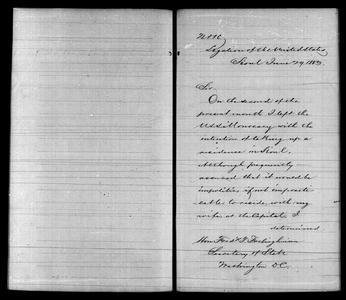 Legation of the United States,
Seoul June 29, 1883.
Sir.
On the second of the
present month I left the
U.S.S. Monocacy with the
intention of taking up a
residence in Seoul.
Although frequently
assured that it would be
impolitic, if not impracti-
cable to reside with my
wife at the Capital, I
determined
Hon. Fredk. T. Frelinghuysen
Secretary of State
Washington D.C.